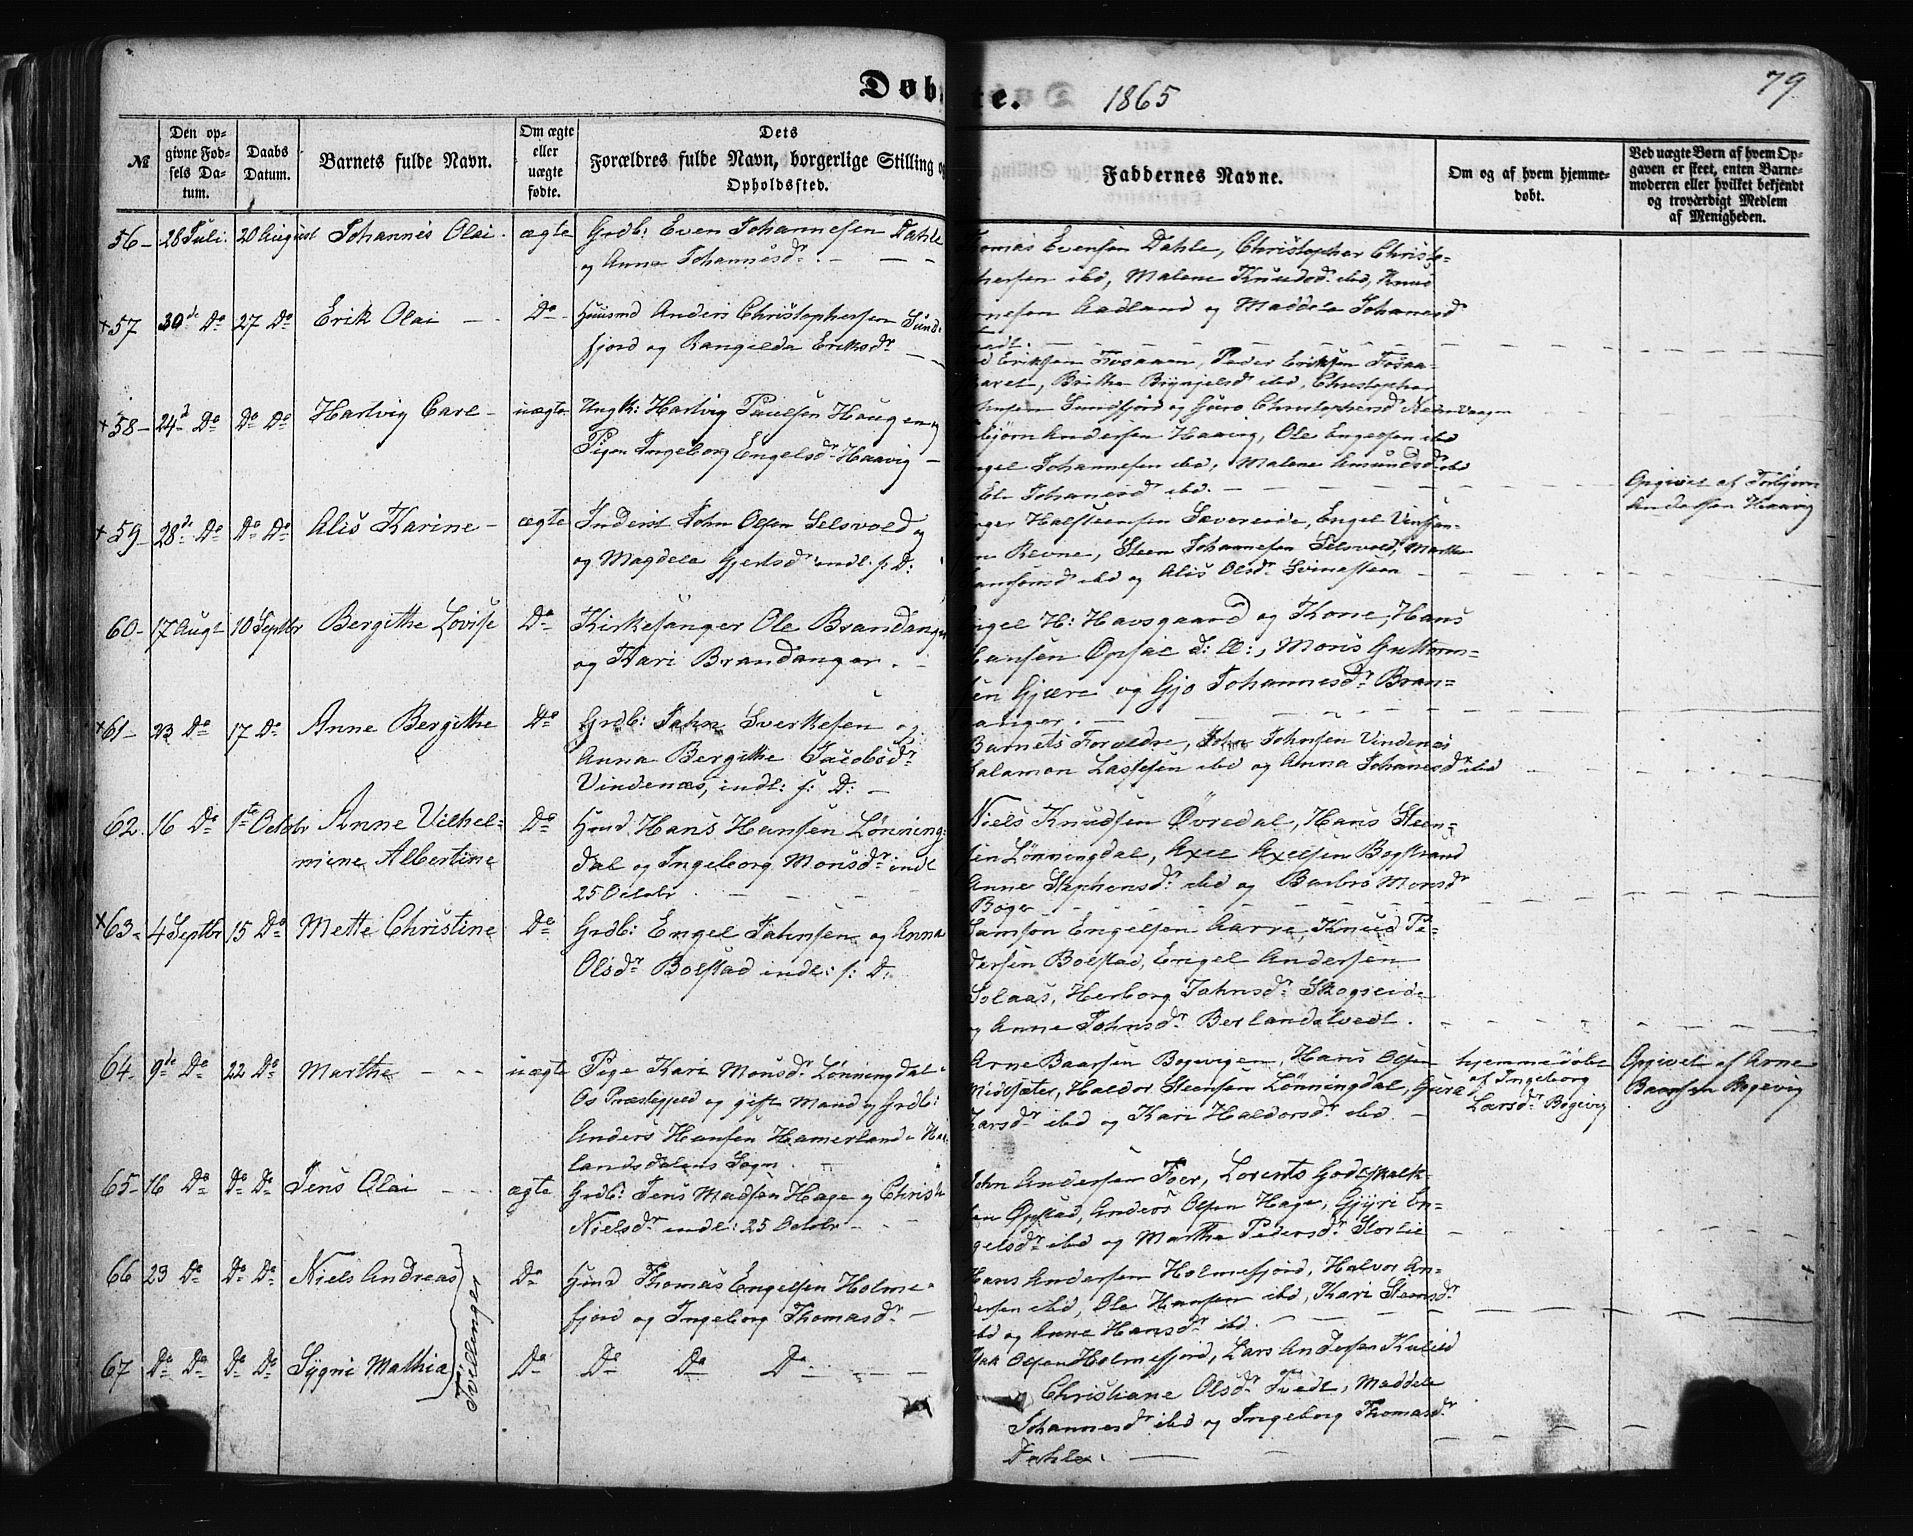 Døb
te. 1865
79
№
Den op-
givne Fød-
sels Da-
tum.
Daabs
Datum.
Barnets fulde Navn.
Om ægte
eller
uægte
fødte.
Dets
Forældres fulde Navn, borgerlige Stilling o
Opholdssted.
Faddernes Navne.
Om og af hvem hjemme-
døbt.
Ved uægte Børn af hvem Op-
gaven er skeet, enten Barne-
moderen eller hvilket bekjendt
og troværdigt Medlem
af Menigheden.
56 - 28 Juli. 20 August Johannes Olai. ægte Grdb: Even Johannesen Dahle
og Anna Johannesdr. - - -
Evensen Dahle, Christopher Christo-
ibd, Malene Knudsdr ibd, Knud
Aadland og Maddela Johanesd
+57 30de Do 27 Do Erik Olai - - Do - Huusmd Anders Christophersen Sund-
fjord og Rangilda Eriksdr - -
Eriksen Fosaaen, Peder Eriksen Fosaa-
Brithe Brynjelsdr ibd, Christopher
Sundfjord og Guro Christophersdr
+58 - 24d Do Do Do Hartvig Carl - uægte Ungk: Hartvig Paulsen Haugen og
Pigen Ingeborg Engelsdr Haavig -
Andersen Haavig, Ole Engelsen ibd
Johannesen ibd, Malene Amundsdr ibd
Johanesdr ibd. - - -
Opgivet af Torbjørn
Andersen Haavig
+59 - 28de Do Do Do Alis Karine - ægte Inderst John Olsen Selsvold og
og Magdela Gjertsdr indl. f: D:
Halsteensen Sævereide, Engel
Revne, Steen Johannesen Selsvold, Marthe
ibd og Alis Olsdr Svinesteen - -
60 - 17 Augt 10 Septbr Bergithe Lovise Do - Kirkesanger Ole Brandanger
og Kari Brandanger. -
H: Havsgaard og Kone, Hans
Hansen Opsal d: Æ:, Mons Guttorm-
sen Gjære og Gjo Johannesdr Bran-
anger. - -
+61 - 23 Do 17 Do Anne Bergithe Do Grdb: John Sverkesen og
Anna Bergithe Jacobsdr
Vindenæs, indl: f: D: -
Barnets Forældre, John Johnsen Vindenæs
Salamon Lassesen ibd og Anna Johanesdr ibd
62. 16 Do 1ste Octobr Anne Vilhel- Do Hmd. Hans Hansen Lønning-
mine Albertine dal og Ingeborg Monsdr indl
25 Octobr. - - -
Niels Knudsen Øvredal, Hans Steen-
sen Lønningdal, Axel Axelsen Bogstrand
Anne Stephensdr ibd og Barbro Monsdr
Boge - - -
x63 - 4 Septbr 15 Do Mette Christine Do Grdb: Engel Johnsen og Anna
Olsdr Bolstad indl: f: D:
Samson Engelsen Aarre, Knud Pe-
dersen Bolstad, Engel Andersen
Solaas, Herborg Johnsdr Skogseide
og Anne Johnsdr Berlandstvedt.
64 - 9de Do 22 Do Marthe - - - uægte Pige Kari Monsdr Lønningdal i
Os Præstegjeld og gift Mand og Grdb:
Anders Hansen Hamerland i Haa-
landsdalens Sogn.
Arne Baarsen Bogevigen, Hans Olsen
Midtsæter, Haldor Steensen Lønningdal, Guro
Larsdr ibd og Kari Haldorsdr ibd -
hjemmedøbt
af Ingeborg
Larsdr Bogevig
Opgivet af Arne
Baarsen Bogevig
65 - 16 Do Do Do Jens Olai - - - ægte Grdb: Jens Madsen Hage og Christi
Nielsdr indl: 25 Octobr - - -
John Andersen Foer, Lorents Godtskalk-
sen Opstad, Anders Olsen Hage, Gjyri En-
gelsdr ibd og Marthe Pedersdr Storlie
66 23 Do Do Do Niels Andreas Do - Hmd Thomas Engelsen Holme-
fjord og Ingeborg Thomasdr -
Hans Andersen Holmefjord, Halvor An-
dersen ibd, Ole Hansen ibd, Kari Steensdr
ibd og Anne Hansdr ibd. - -
Tvillenger
67 Do Do Do Do Sygni Mathia Do Do Do Do - - -
Olsen Holmefjord, Lars Andersen
og Christiane Olsdr Tvedt, Maddele
Johannesdr ibd og Ingeborg Thomasdr
Dahle. - -